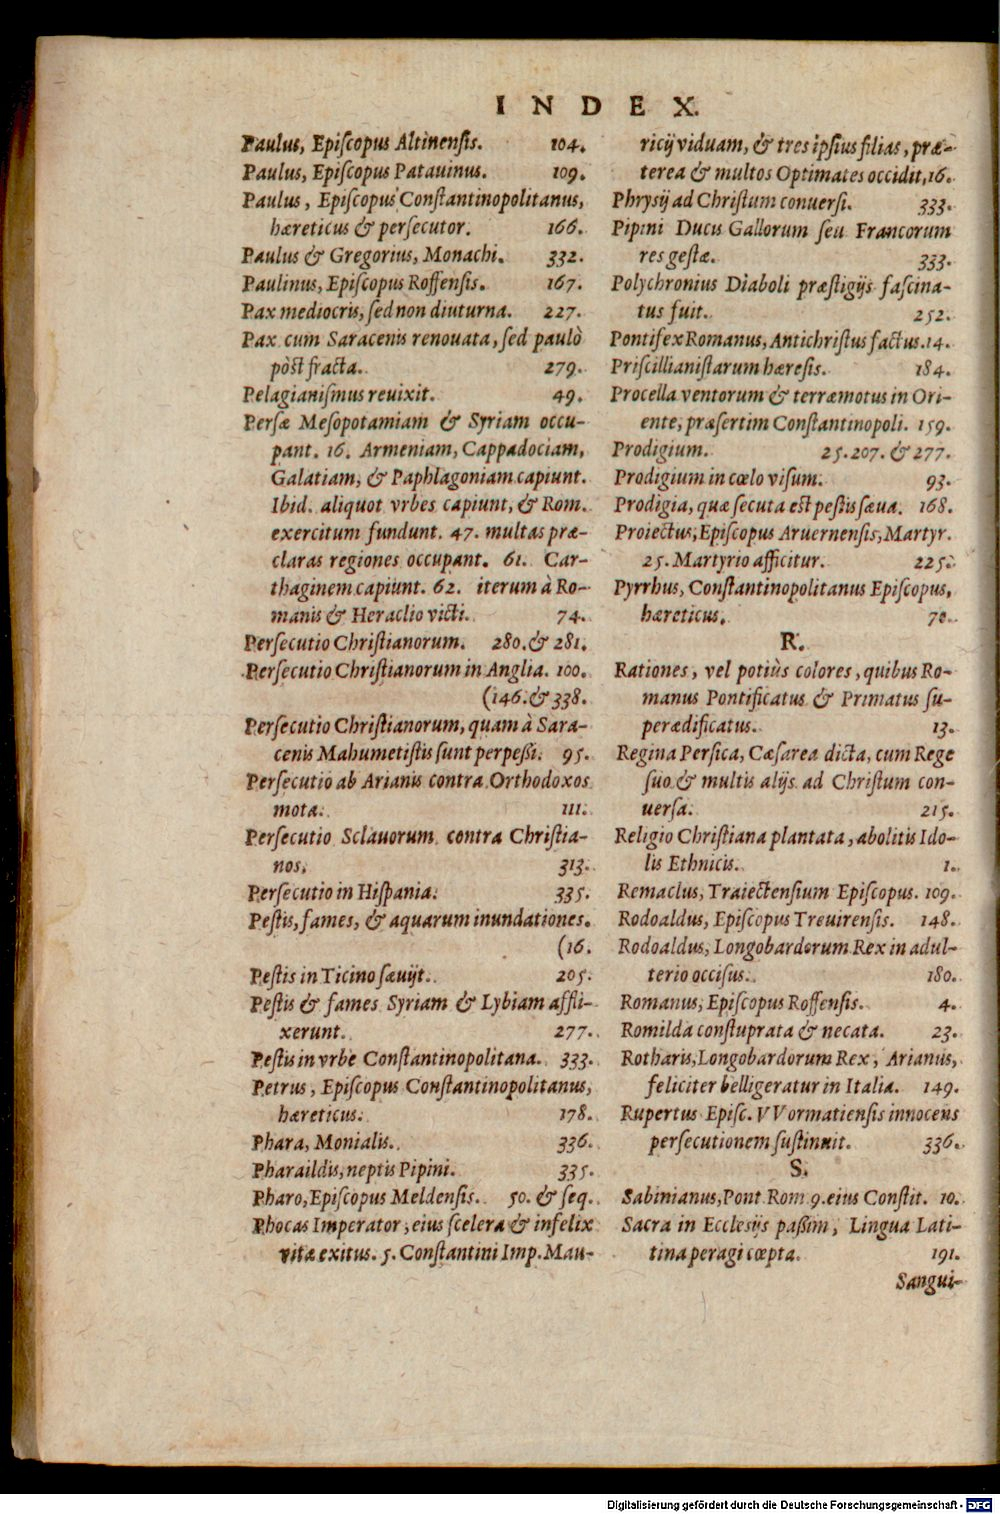 INDEX.
Paulus, Episcopus Altinensis. 104.
Paulus, Episcopus Patauinus. 109.
Paulus, Episcopus Constantinopolitanus,
hæreticus & persecutor. 166.
Paulus & Gregorius, Monachi. 332.
Paulinus, Episcopus Roffensis. 167.
Pax mediocris, sed non diuturna. 227.
Pax cum Saracenis renouata, sed paulò
pòst fracta. 279.
Pelagianismus reuixit. 49.
Persæ Mesopotamiam & Syriam occu-
pant. 16. Armeniam, Cappadociam,
Galatiam, & Paphlagoniam capiunt.
Ibid. aliquot vrbes capiunt, & Rom.
exercitum fundunt. 47. multas præ-
claras regiones occupant. 61. Car-
thaginem capiunt. 62. iterum à Ro-
manis & Heraclio victi. 74.
Persecutio Christianorum. 280. & 281.
Persecutio Christianorum in Anglia. 100.
(146. & 338.
Persecutio Christianorum, quam à Sara-
cenis Mahumetistis sunt perpeßi. 95.
Persecutio ab Arianis contra Orthodoxos
mota. 111.
Persecutio Sclauorum contra Christia-
nos. 313.
Persecutio in Hispania. 335.
Pestis, fames, & aquarum inundationes.
(16.
Pestis in Ticino sæuijt. 205.
Pestis & fames Syriam & Lybiam affli-
xerunt. 277.
Pestis in vrbe Constantinopolitana. 333.
Petrus, Episcopus Constantinopolitanus,
hæreticus. 178.
Phara, Monialis. 336.
Pharaildis, neptis Pipini. 335.
Pharo, Episcopus Meldensis. 50. & seq.
Phocas Imperator, eius scelera & infelix
vitæ exitus. 5. Constantini Imp. Mau-
ricij viduam, & tres ipsius filias, præ-
terea & multos Optimates occidit, 16.
Phrysij ad Christum conuersi. 333.
Pipini Ducis Gallorum seu Francorum
res gestæ. 333.
Polychronius Diaboli præstigijs fascina-
tus fuit. 252.
Pontifex Romanus, Antichristus factus. 14.
Priscillianistarum hæresis. 184.
Procella ventorum & terræmotus in Ori-
ente, præsertim Constantinopoli. 159.
Prodigium. 25. 207. & 277.
Prodigium in cœlo visum. 93.
Prodigia, quæ secuta est pestis sæua. 168.
Proiectus, Episcopus Aruernensis, Martyr.
25. Martyrio afficitur. 225.
Pyrrhus, Constantinopolitanus Episcopus,
hæreticus. 70.
R.
Rationes, vel potiùs colores, quibus Ro-
manus Pontificatus & Primatus su-
perædificatus. 13.
Regina Persica, Cæsarea dicta, cum Rege
suo & multis alijs ad Christum con-
uersa. 215.
Religio Christiana plantata, abolitis Ido-
lis Ethnicis. 1.
Remaclus, Traiectensium Episcopus. 109.
Rodoaldus, Episcopus Treuirensis. 148.
Rodoaldus, Longobardorum Rex in adul-
terio occisus. 180.
Romanus, Episcopus Roffensis. 4.
Romilda constuprata & necata. 23.
Rotharis, Longobardorum Rex, Arianus,
feliciter belligeratur in Italia. 149.
Rupertus Episc. VVormatiensis innocens
persecutionem sustinuit. 336.
S.
Sabinianus, Pont Rom 9. eius Constit. 10.
Sacra in Ecclesijs paßim, Lingua Lati-
tina peragi cœpta. 191.
Sangui-
Digitalisierung gefördert durch die Deutsche Forschungsgemeinschaft - DFG